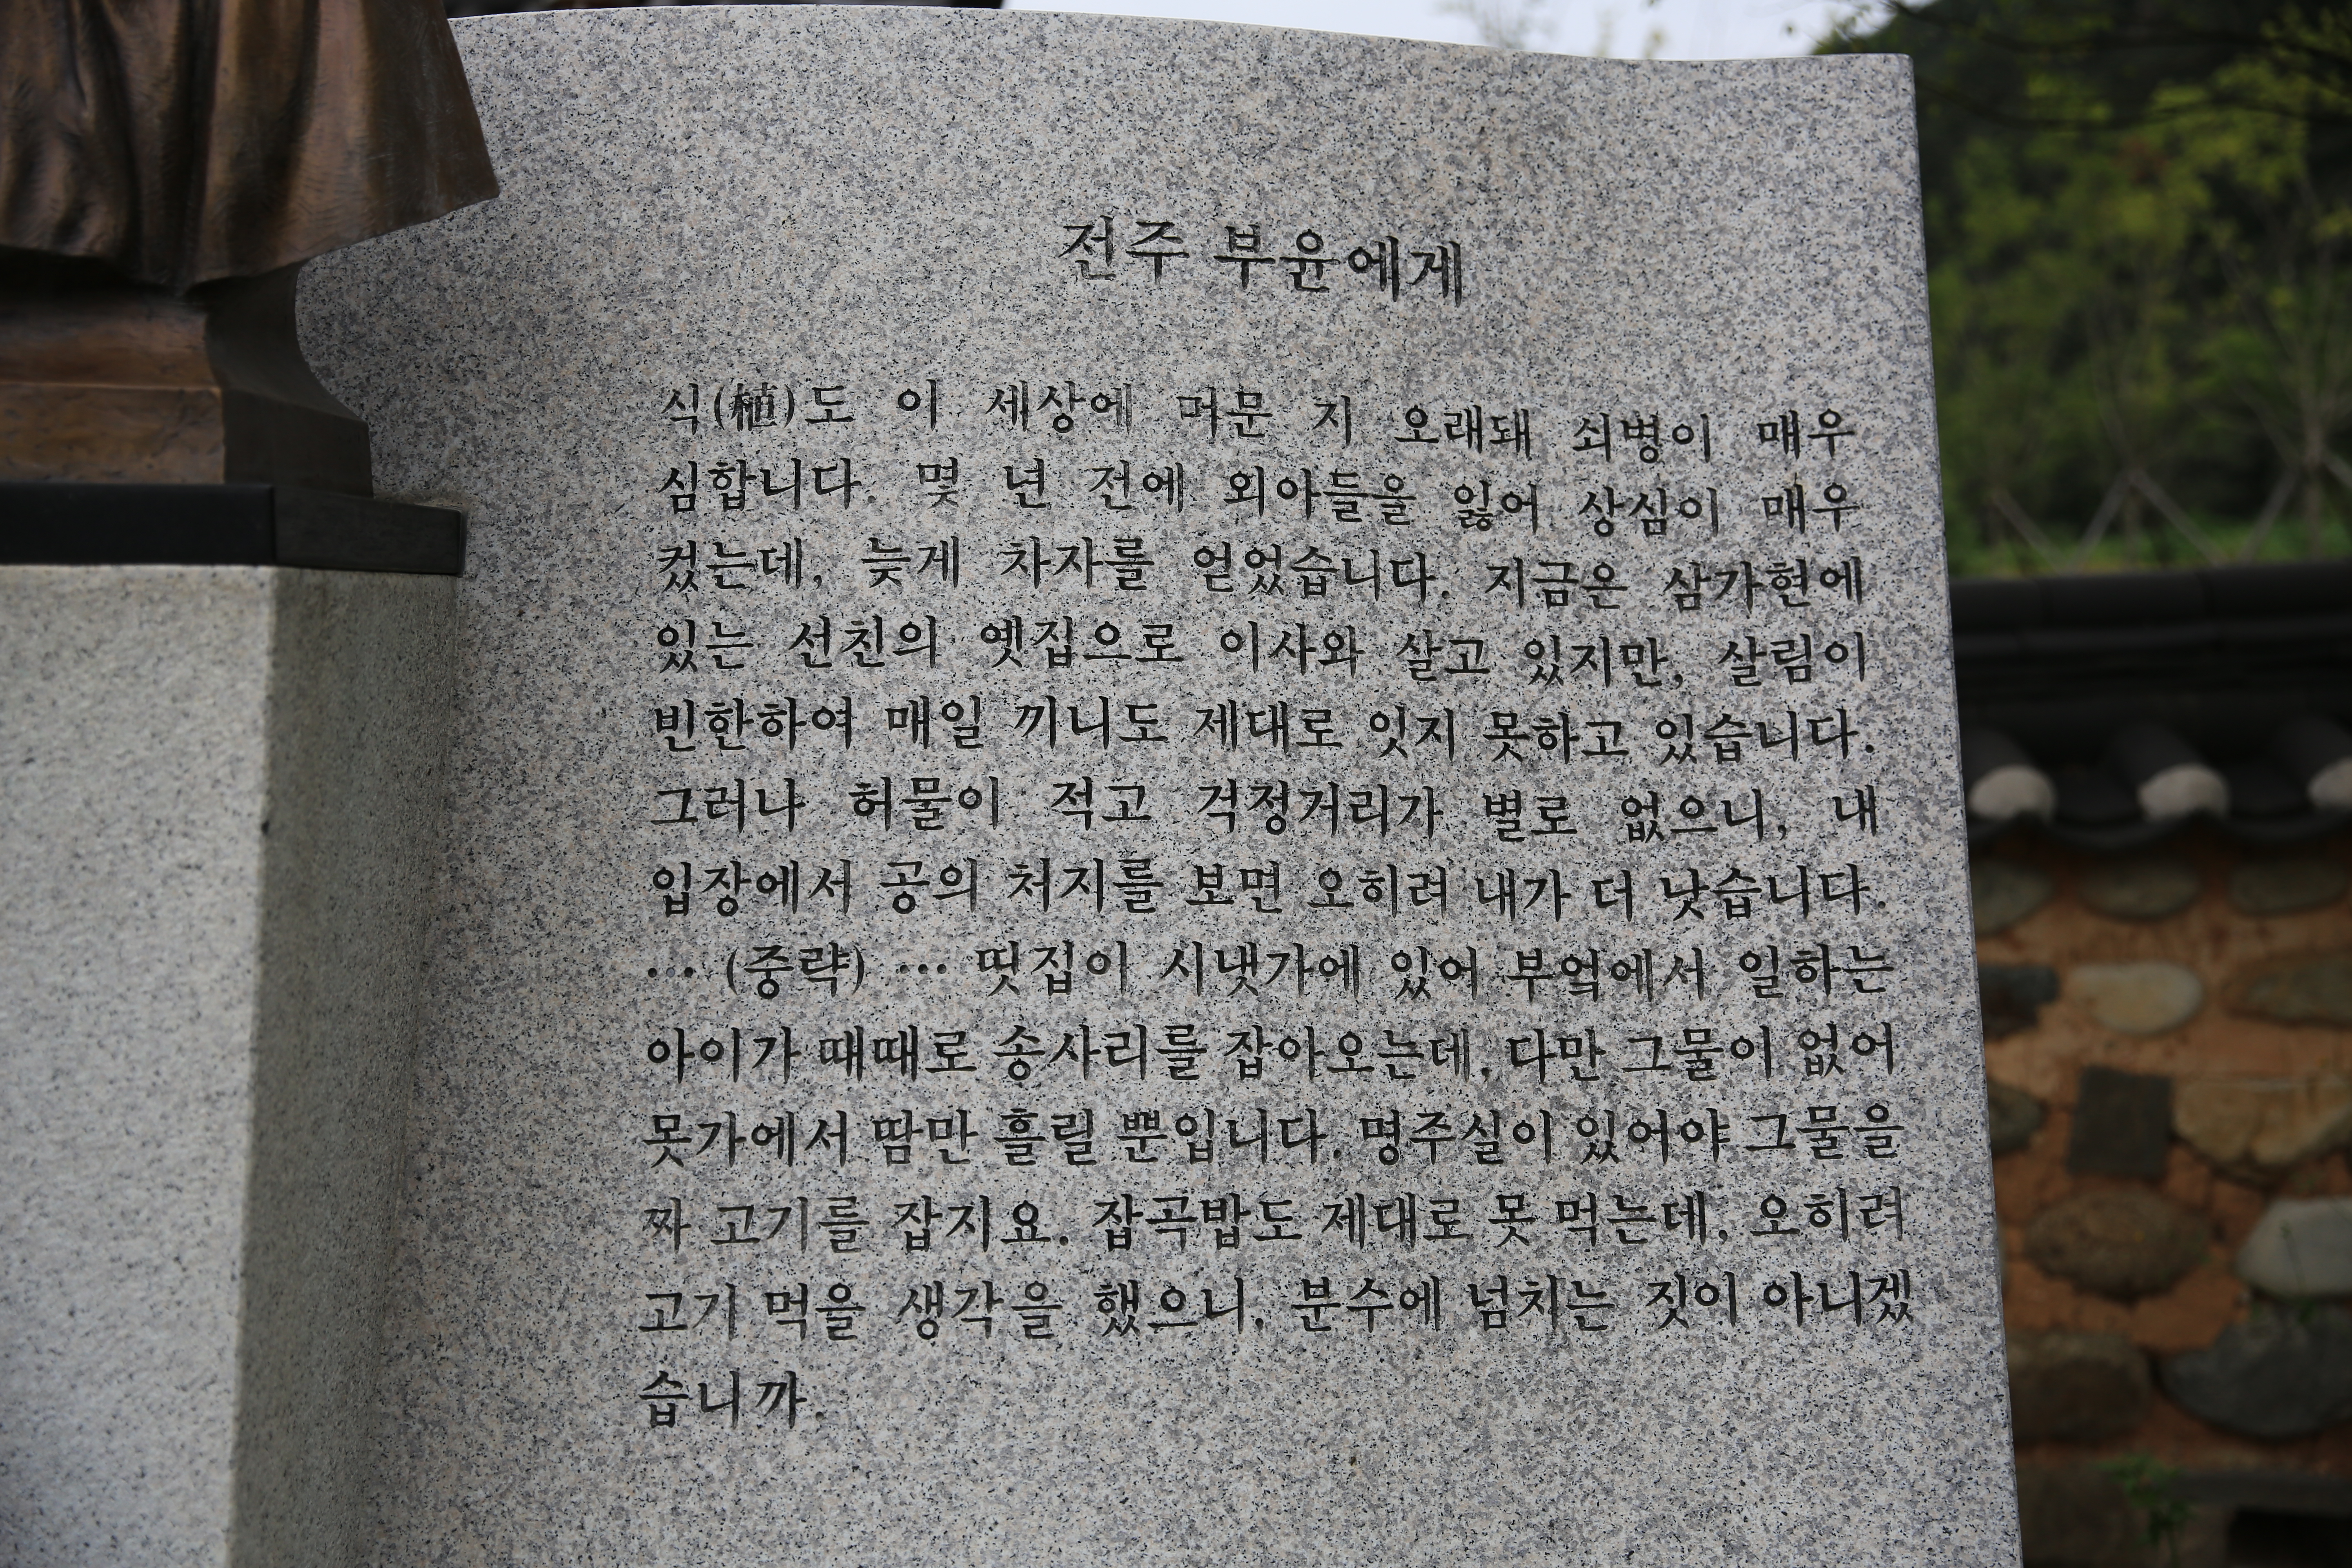 전주 부윤에게
식(植)도 이 세상에 머문 지 오래돼 쇠병이 매우
심합니다. 몇 년 전에 외아들을 잃어 상심이 매우
컸는데, 늦게 차자를 얻었습니다. 지금은 삼가현에
있는 선친의 옛집으로 이사와 살고 있지만, 살림이
빈한하여 매일 끼니도 제대로 잇지 못하고 있습니다.
그러나 허물이 적고 걱정거리가 별로 없으니, 내
입장에서 공의 처지를 보면 오히려 내가 더 낫습니다.
… (중략) … 띳집이 시냇가에 있어 부엌에서 일하는
아이가 때때로 송사리를 잡아오는데, 다만 그물이 없어
못가에서 땀만 흘릴 뿐입니다. 명주실이 있어야 그물을
짜 고기를 잡지요. 잡곡밥도 제대로 못 먹는데, 오히려
고기 먹을 생각을 했으니, 분수에 넘치는 짓이 아니겠
습니까.